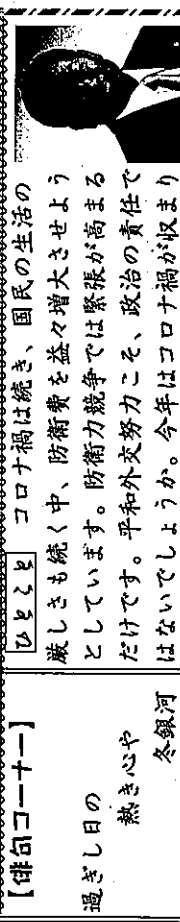 ひとくと
コロナ禍は続き、国民の生活の
厳しさも続く中、防衛費を益々増大させよう
としています。防衛力競争では緊張が高まる
だけです。平和外交努力こそ、政治の責任で
はないでしょうか。今年はコロナ禍が収まり
【俳句コーナー】
過ぎし日の
熱き心や
冬銀河